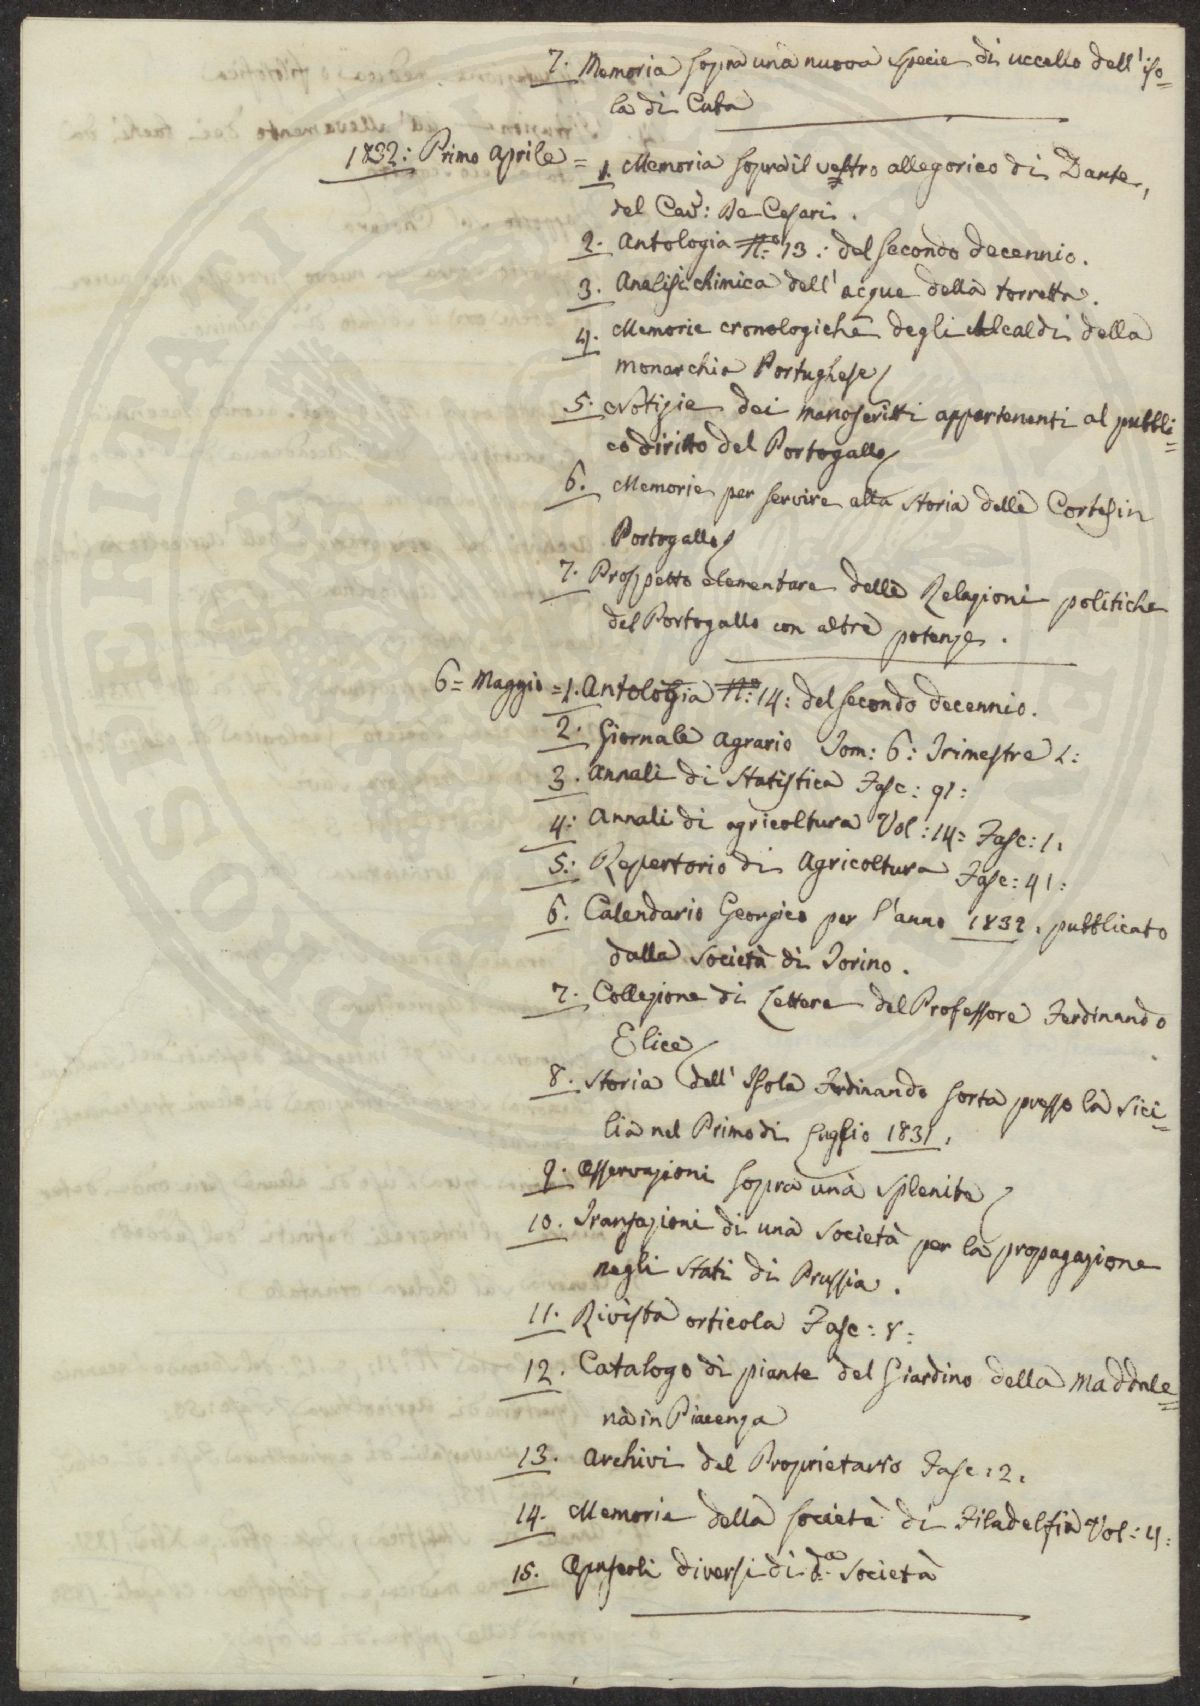 7. Memoria sopra una nuova specie di uccello dell' iso=
la di Cuba
1832: Primo Aprile = 1. Memoria sopra il veltro allegorico di Dante,
del Cav: De Cesari.
2. Antologia N.º 13: del secondo decennio.
3. Analisi chimica dell' acque della torretta.
4. Memorie cronologiche degli Alcaldi della
monarchia Portughese
5. Notizie dei manoscritti appartenenti al pubbli=
co diritto del Portogallo
6. Memorie per servire alla storia delle Cortes in
Portogallo
7. Prospetto elementare delle Relazioni politiche
del Portogallo con altre potenze.
6= Maggio = 1. Antologia N.º 14: del secondo decennio.
2. Giornale Agrario Tom: 6: Trimestre 1:
3. Annali di Statistica Fasc: 91:
4: Annali di agricoltura Vol: 14: Fasc: 1.
5: Repertorio di Agricoltura Fasc: 41:
6. Calendario Georgico per l'anno 1832. pubblicato
dalla Società di Torino.
7. Collezione di Lettere del Professore Ferdinando
Elice
8. Storia dell' Isola Ferdinando sorta presso la Sici=
lia nel Primo di Luglio 1831.
9. Osservazioni sopra una Splenite
10. Transazioni di una Società per la propagazione
negli Stati di Prussia.
11. Rivista orticola Fasc: 8:
12. Catalogo di piante del Giardino della Maddale=
na in Piacenza
13. Archivi del Proprietario Fasc: 2.
14. Memorie della Società di Filadelfia Vol: 4:
15. Opuscoli diversi di d.ª Società